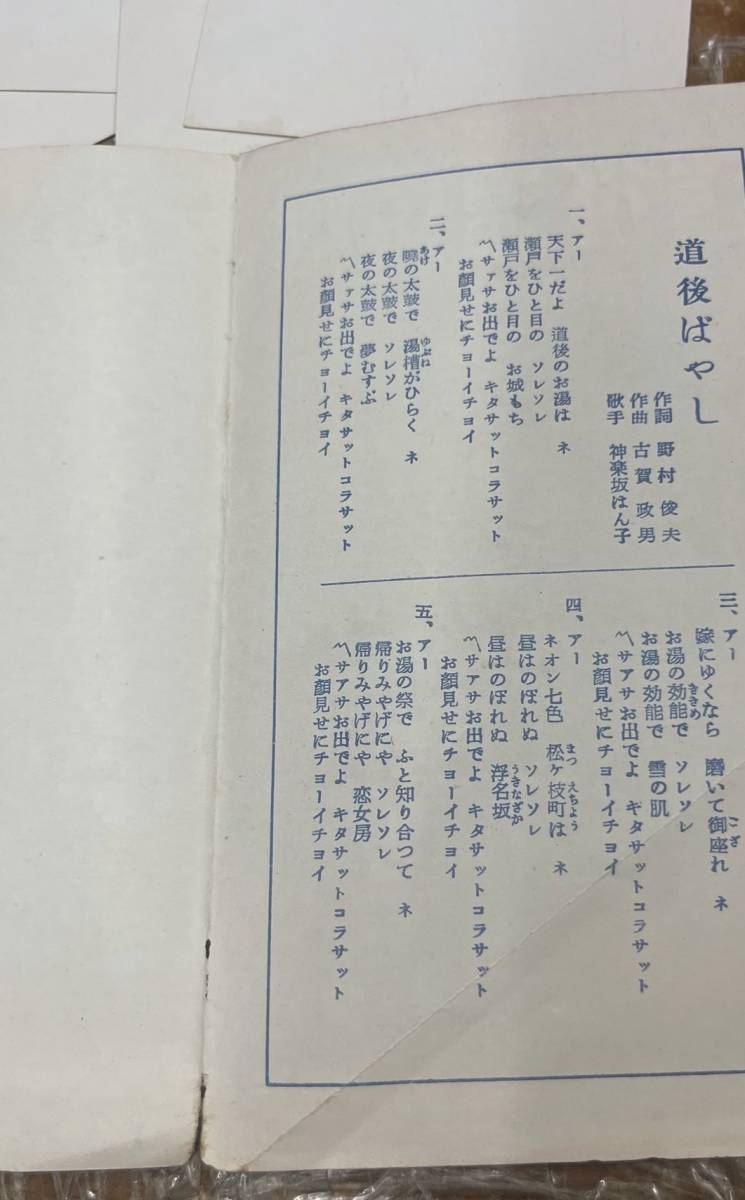 道後ばやし
作詞 野村俊夫
作曲 古賀政男
歌手 神楽坂はん子
一、アー
天下一だよ 道後のお湯は ネ
瀬戸をひと目の ソレソレ
瀬戸をひと目の お城もち
〽サァサお出でよ キタサットコラサット
お顔見せにチョーイチョイ
二、アー
暁の太鼓で 湯槽がひらく ネ
夜の太鼓で ソレソレ
夜の太鼓で 夢むすぶ
〽サァサお出でよ キタサットコラサット
お顔見せにチョーイチョイ
三、アー
嫁にゆくなら 磨いて御座れ ネ
お湯の効能で ソレソレ
お湯の効能で 雪の肌
〽サアサお出でよ キタサットコラサット
お顔見せにチョーイチョイ
四、アー
ネオン七色 松ヶ枝町は ネ
昼はのぼれぬ ソレソレ
昼はのぼれぬ 浮名坂
〽サアサお出でよ キタサットコラサット
お顔見せにチョーイチョイ
五、アー
お湯の祭で ふと知り合つて ネ
帰りみやげにや ソレソレ
帰りみやげにや 恋女房
〽サアサお出でよ キタサットコラサット
お顔見せにチョーイチョイ